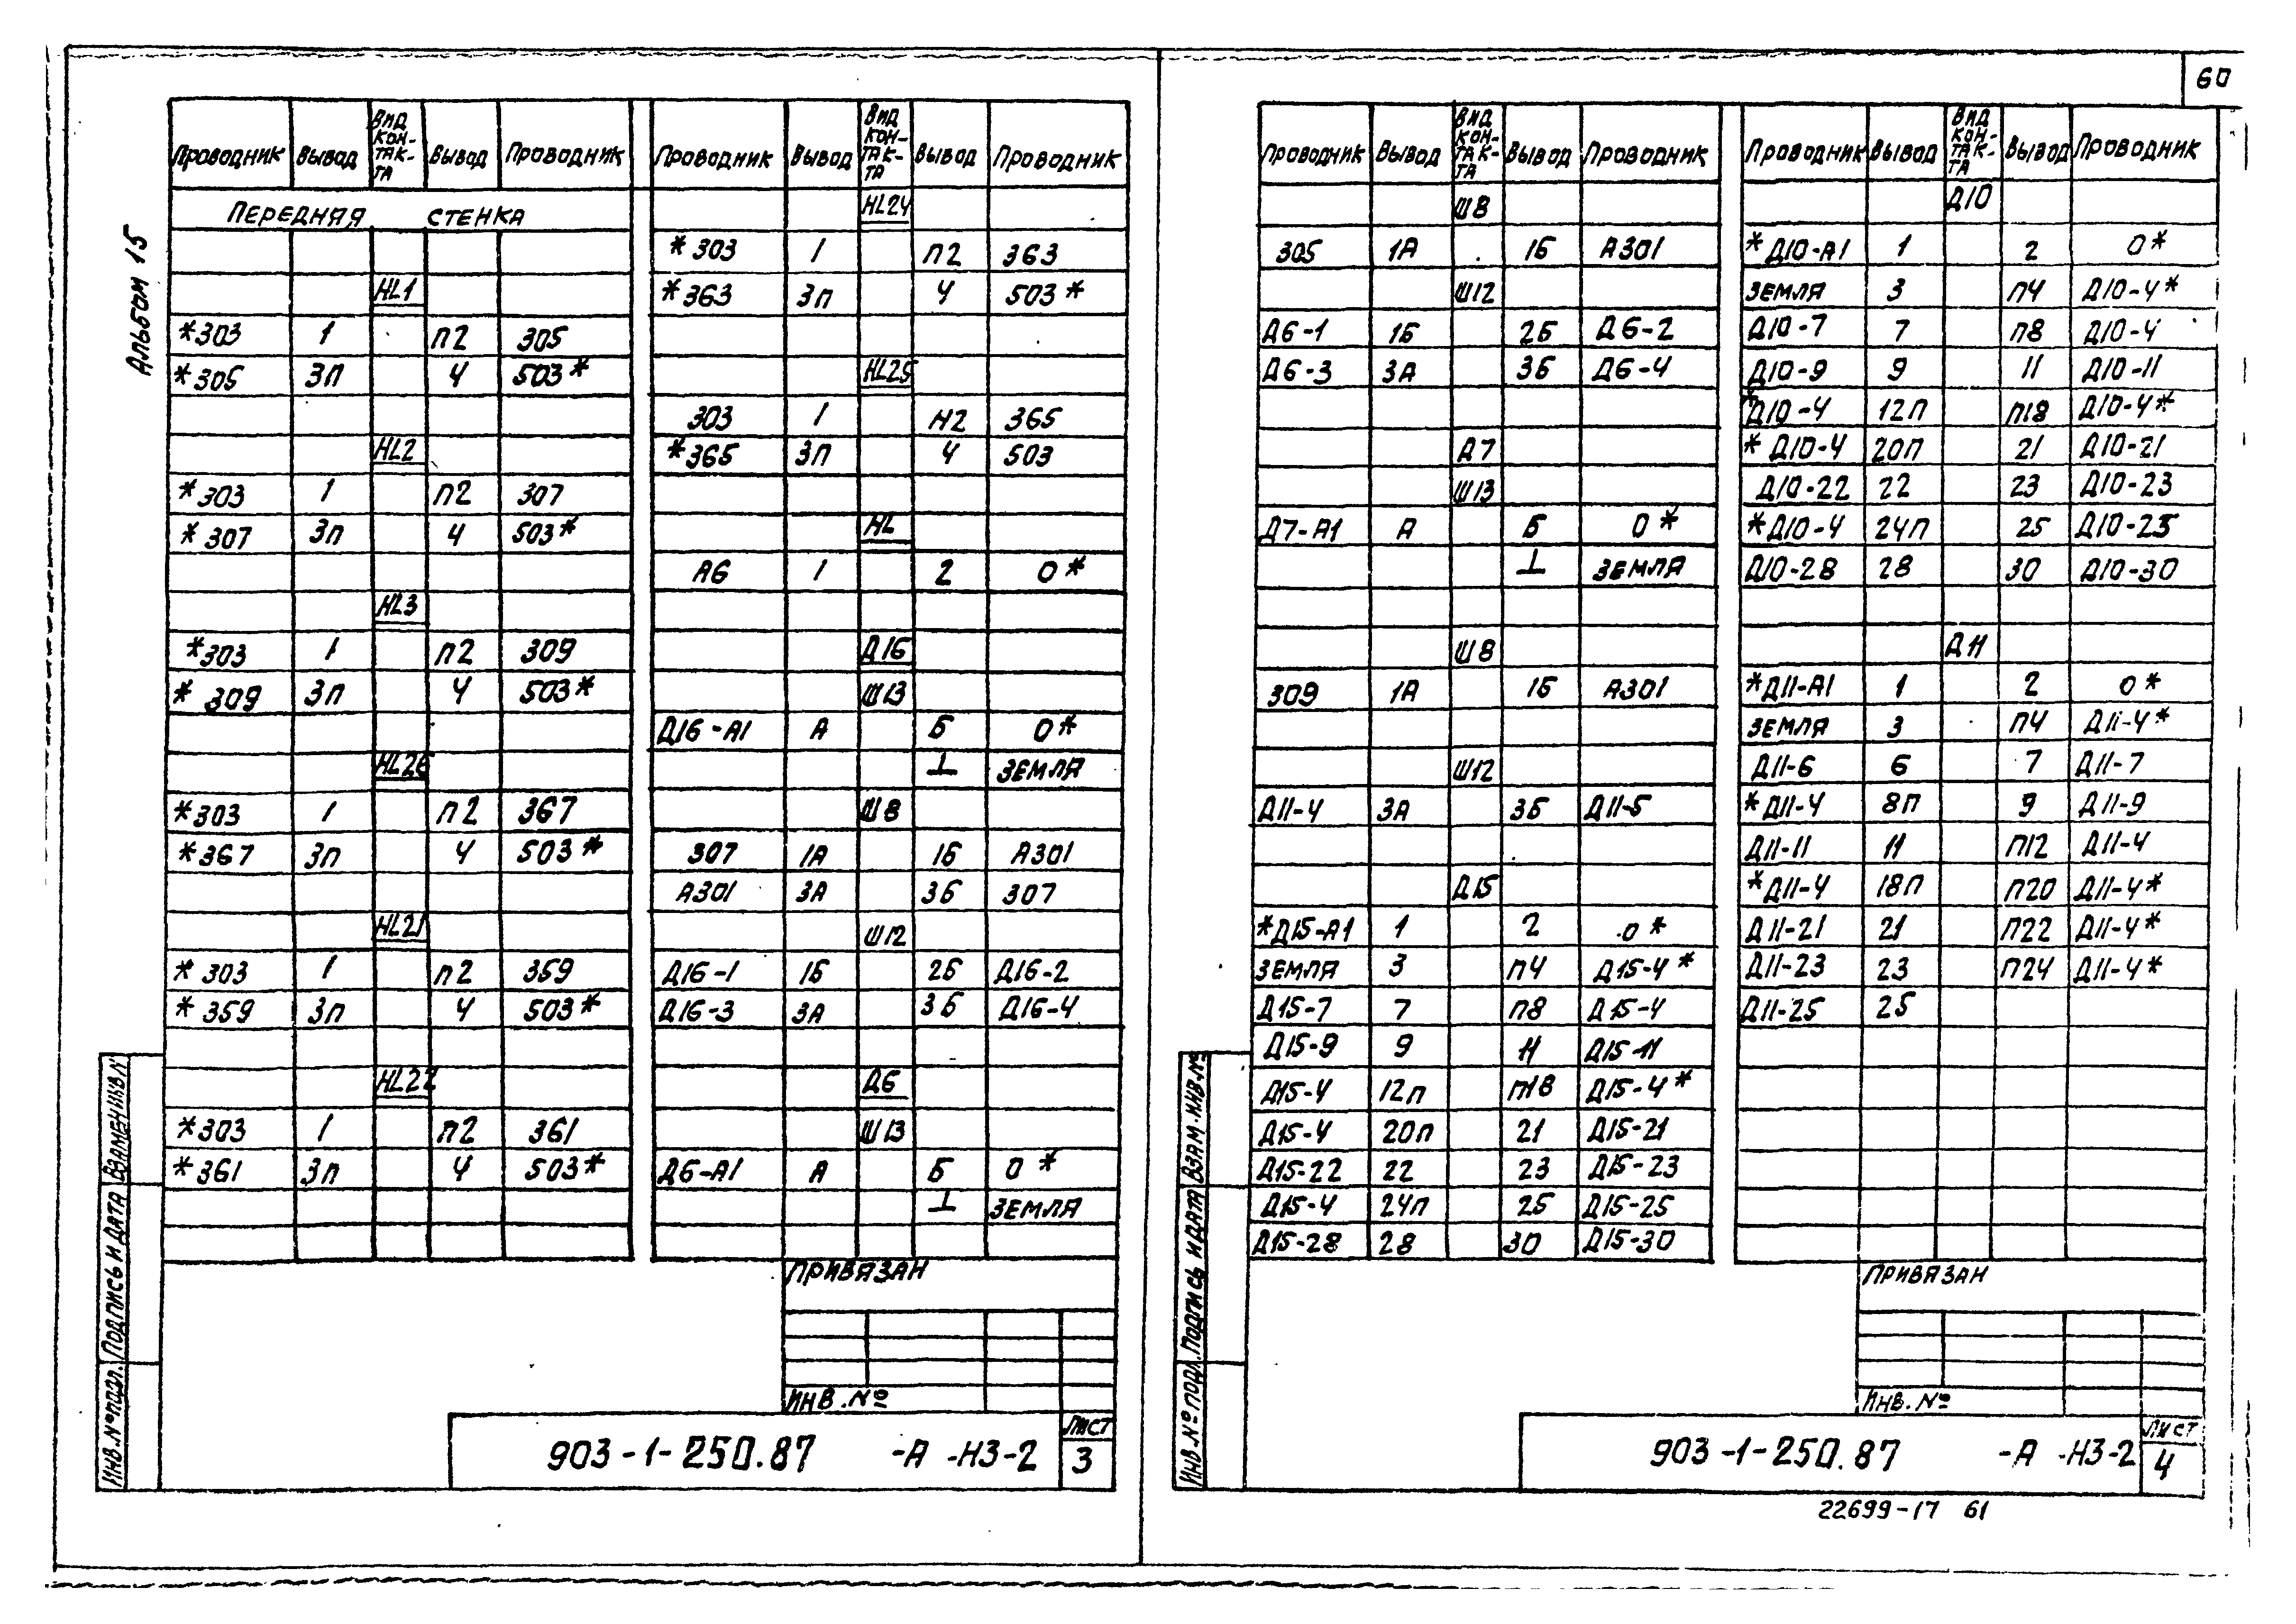 60
Альбом 15
Проводник Вывод Вид контакта Вывод Проводник
Передняя стенка
HL1
*303 1 п2 305
*305 3п 4 503*
HL2
*303 1 п2 307
*307 3п 4 503*
HL3
*303 1 п2 309
*309 3п 4 503*
HL26
*303 1 п2 367
*367 3п 4 503*
HL21
*303 1 п2 359
*359 3п 4 503*
HL22
*303 1 п2 361
*361 3п 4 503*
Проводник Вывод Вид контакта Вывод Проводник
HL24
*303 1 п2 363
*363 3п 4 503*
HL25
303 1 Н2 365
*365 3п 4 503
HL
А6 1 2 0*
Д16
Ш13
Д16-А1 А Б 0*
⊥ Земля
Ш8
307 1А 1Б А301
А301 3А 3Б 307
Ш12
Д16-1 1Б 2Б Д16-2
Д16-3 3А 3Б Д16-4
Д6
Ш13
Д6-А1 А Б 0*
⊥ Земля
Привязан
Инв. №
903-1-250.87 -А -НЗ-2
Лист
3
Инв. № подл. Подпись и дата Взамен инв. №
Проводник Вывод Вид контакта Вывод Проводник
Ш8
305 1А 1Б А301
Ш12
Д6-1 1Б 2Б Д6-2
Д6-3 3А 3Б Д6-4
Д7
Ш13
Д7-А1 А Б 0*
⊥ Земля
Ш8
309 1А 1Б А301
Ш12
Д11-4 3А 3Б Д11-5
Д15
*Д15-А1 1 2 0*
Земля 3 п4 Д15-4*
Д15-7 7 п8 Д15-4
Д15-9 9 11 Д15-11
Д15-4 12п п18 Д15-4*
Д15-4 20п 21 Д15-21
Д15-22 22 23 Д15-23
Д15-4 24п 25 Д15-25
Д15-28 28 30 Д15-30
Проводник Вывод Вид контакта Вывод Проводник
Д10
*Д10-А1 1 2 0*
Земля 3 п4 Д10-4*
Д10-7 7 п8 Д10-4
Д10-9 9 11 Д10-11
*Д10-4 12п п18 Д10-4*
*Д10-4 20п 21 Д10-21
Д10-22 22 23 Д10-23
*Д10-4 24п 25 Д10-25
Д10-28 28 30 Д10-30
Д11
*Д11-А1 1 2 0*
Земля 3 п4 Д11-4*
Д11-6 6 7 Д11-7
*Д11-4 8п 9 Д11-9
Д11-11 11 п12 Д11-4
*Д11-4 18п п20 Д11-4*
Д11-21 21 п22 Д11-4*
Д11-23 23 п24 Д11-4*
Д11-25 25
Привязан
Инв. №
903-1-250.87 -А -НЗ-2
Лист
4
Инв. № подл. Подпись и дата Взам. инв. №
22699-17 61